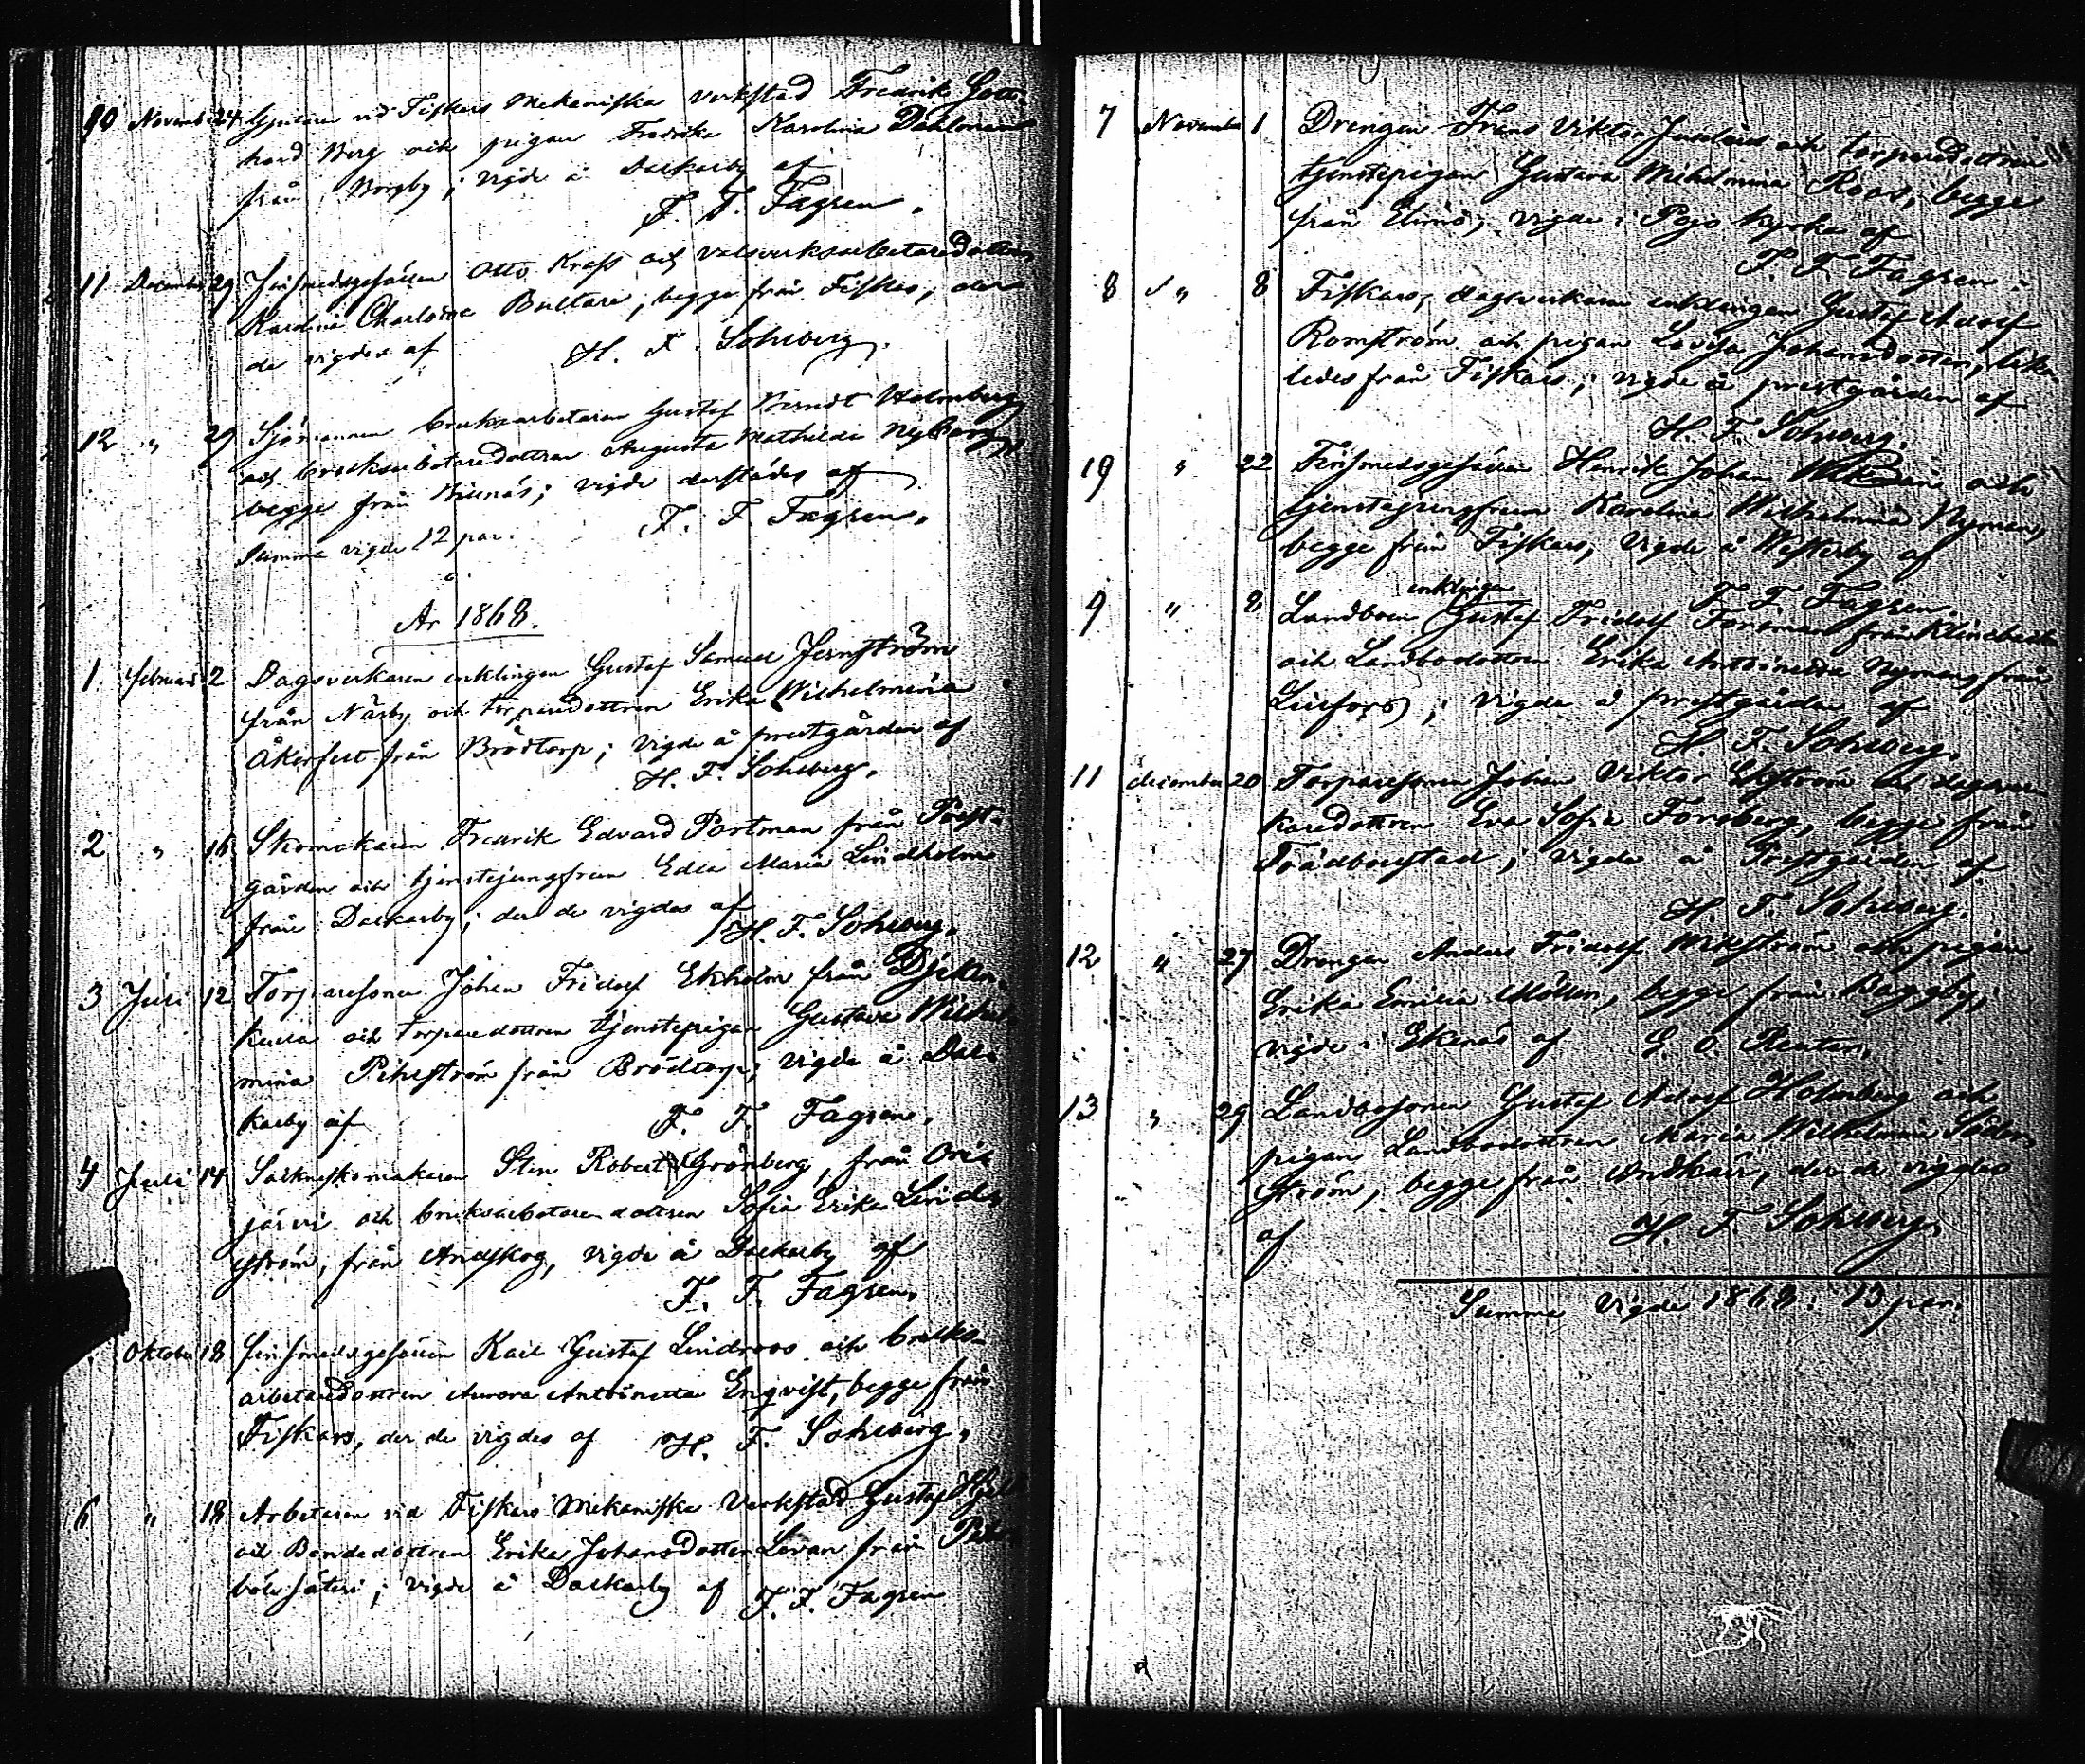 10 Novemb. 24 vid Fiskars Mekaniska verkstad Fredrik Gott-
hard Berg och pigan Fredrika Karolina Dahlman
från Borgby; vigde å Dalkarby af
F. F. Fagrén.
11 December 29 Finsmedsgesällen Otto Kraft och valsverksarbetaredottren
Karolina Charlotta Bultare, begge från Fiskars, der
de vigdes af H. F. Sohlberg.
12 " 29 Sjömannen bruksarbetaren Gustaf Berndt Holmberg
och bruksarbetaredottren Augusta Mathilda Nyberg,
begge från Billnäs; vigde derstädes af
F. F. Fagrén.
Summa vigde 12 par.
År 1868.
1. Februari 2 Dagsverkaren enklingen Gustaf Samuel Jernström
från Näsby och torparedottren Erika Wilhelmina
Åkerfelt från Brödtorp; vigde å prestgården af
H. F. Sohlberg.
2 " 16 Skomakaren Fredrik Edvard Portman från Prest-
gården och tjenstejungfrun Edla Maria Lindholm
från Dalkarby; der de vigdes af
H. F. Sohlberg.
3 Juli 12 Torparesonen Johan Fridolf Ekholm från
kulla och torparedottren tjenstepigan Gustava Wilhel-
mina Pihlström från Brödtorp; vigde å Dal-
karby af F. F. Fagrén.
4 Juli 14 Sockneskomakaren Sten Robert Grönberg, från
järvi och bruksarbetaredottren Sofia Erika Lind-
ström, från Antskog, vigde å Dalkarby af
F. F. Fagrén.
Oktober 18 Finsmedsgesällen Karl Gustaf Lindroos och bruks-
arbetaredottren Aurora Antoinetta Enqvist, begge från
Fiskars, der de vigdes af H. F. Sohlberg.
6 " 18 Arbetaren vid Fiskars Mekaniska Verkstad Gustaf
och Bondedottren Erika Johansdotter Levan från
böle säteri; vigde å Dalkarby af F. F. Fagrén
7 November 1 Drengen Frans Viktor och torparedottren
tjenstepigan Gustava Wilhelmina Roos, begge
från Elimo; vigde i Pojo kyrka af
F. F. Fagrén.
8 " 8 Fiskars, dagsverkaren enklingen Gustaf Adolf
Romström och pigan Lovisa Johansdotter, like-
ledes från Fiskars; vigde å prestgården af
H. F. Sohlberg.
19 " 22 Finsmedsgesällen Henrik Johan och
tjenstejungfrun Karolina Wilhelmina Nyman,
begge från Fiskars, vigde å Westerby af
F. F. Fagrén.
enklingen
9 " 8 Landboen Gustaf Fridolf Forsman från Klinkbacka
och Landbodottren Erika Antoinetta Nyman från
; vigde å prestgården af
H. F. Sohlberg.
11 december 20 Torparesonen Johan Viktor och dagsver-
karedottren Eva Sofia Forsberg, begge från
Trädbollstad; vigde å Prestgården af
H. F. Sohlberg.
12 " 27 Drengen Anders Fridolf Wikström och pigan
Erika Emilia , begge från Baggby;
vigde i Ekenäs af G. O. Reuter.
13 " 29 Landbosonen Gustaf Adolf Holmberg och
pigan Landbodottren Maria Wilhelmina Söder-
ström, begge från , der de vigdes
af H. F. Sohlberg.
Summa Vigde 1868: 13 par.